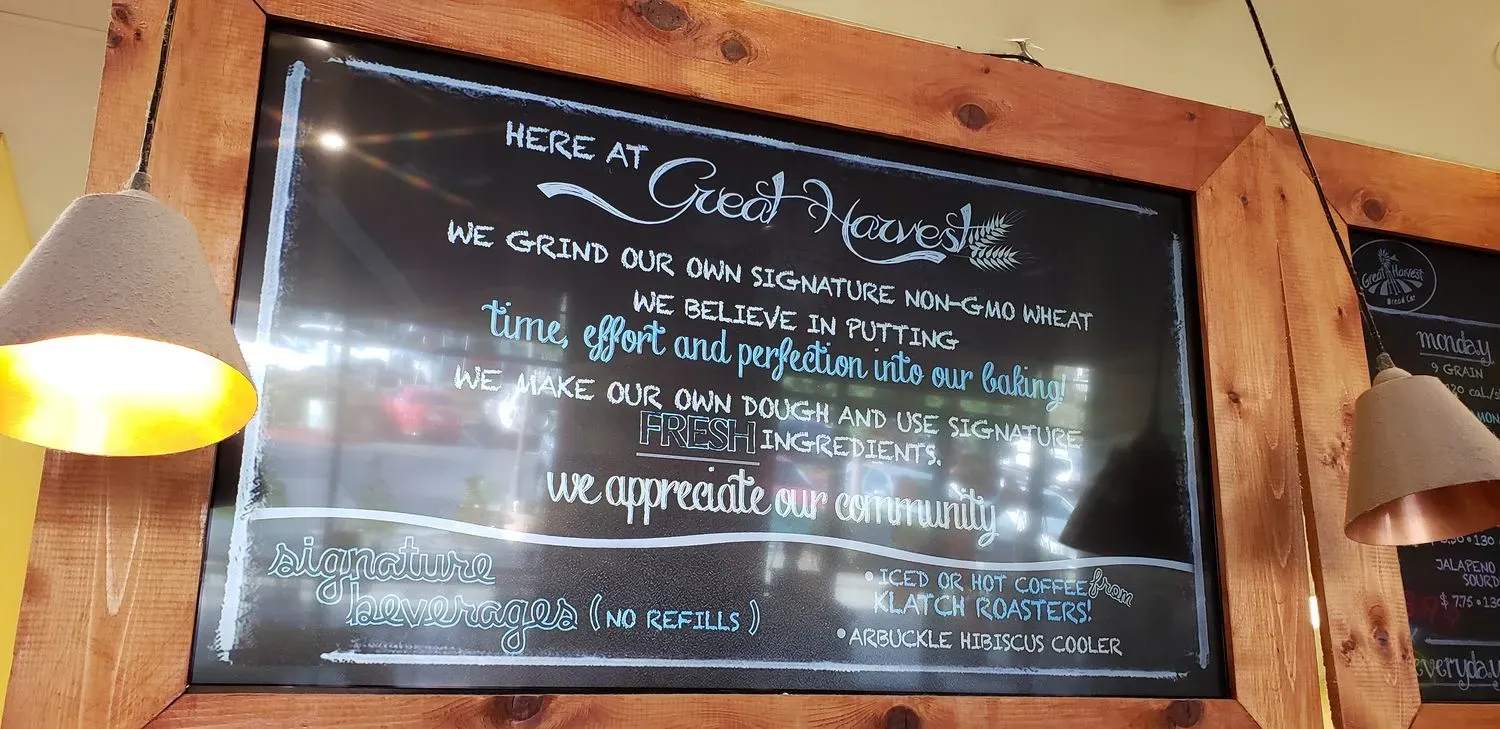 HERE AT Great Harvest
WE GRIND OUR OWN SIGNATURE NON-GMO WHEAT
WE BELIEVE IN PUTTING
time, effort and perfection into our baking!
WE MAKE OUR OWN DOUGH AND USE SIGNATURE
FRESH INGREDIENTS.
we appreciate our community
signature
beverages (NO REFILLS)
• ICED OR HOT COFFEE from
KLATCH ROASTERS!
• ARBUCKLE HIBISCUS COOLER
Great Harvest
Bread Co.
monday
9 GRAIN
JALAPENO
$7.75 • 130
everyday